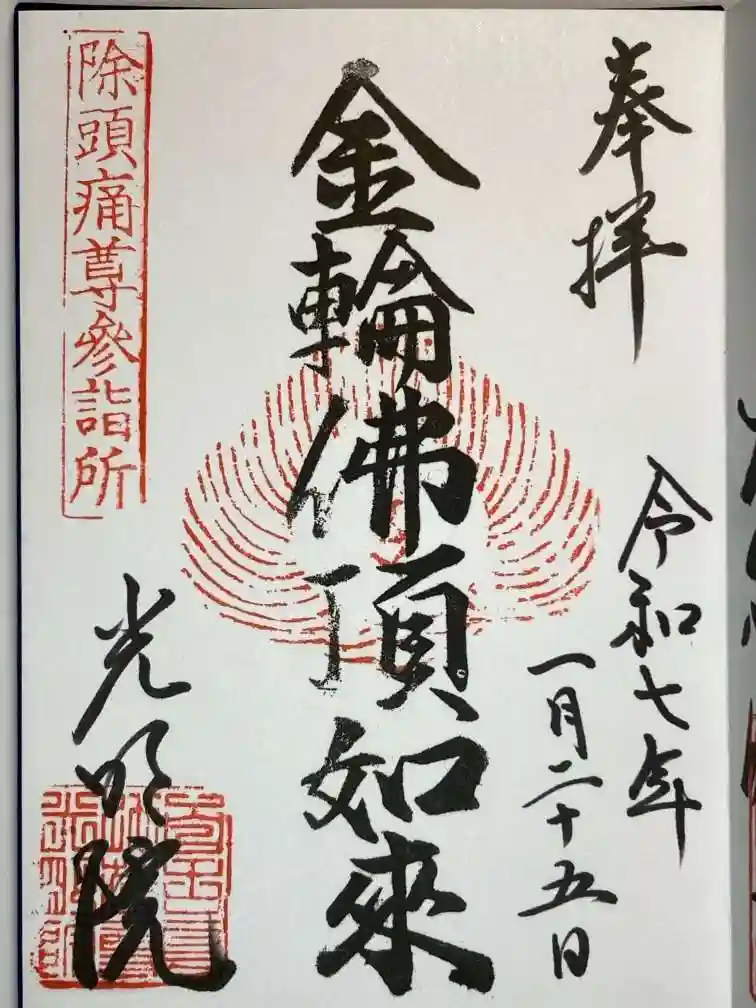 奉拝
令和七年
一月二十五日
金輪佛頂如來
除頭痛尊參詣所
光明院